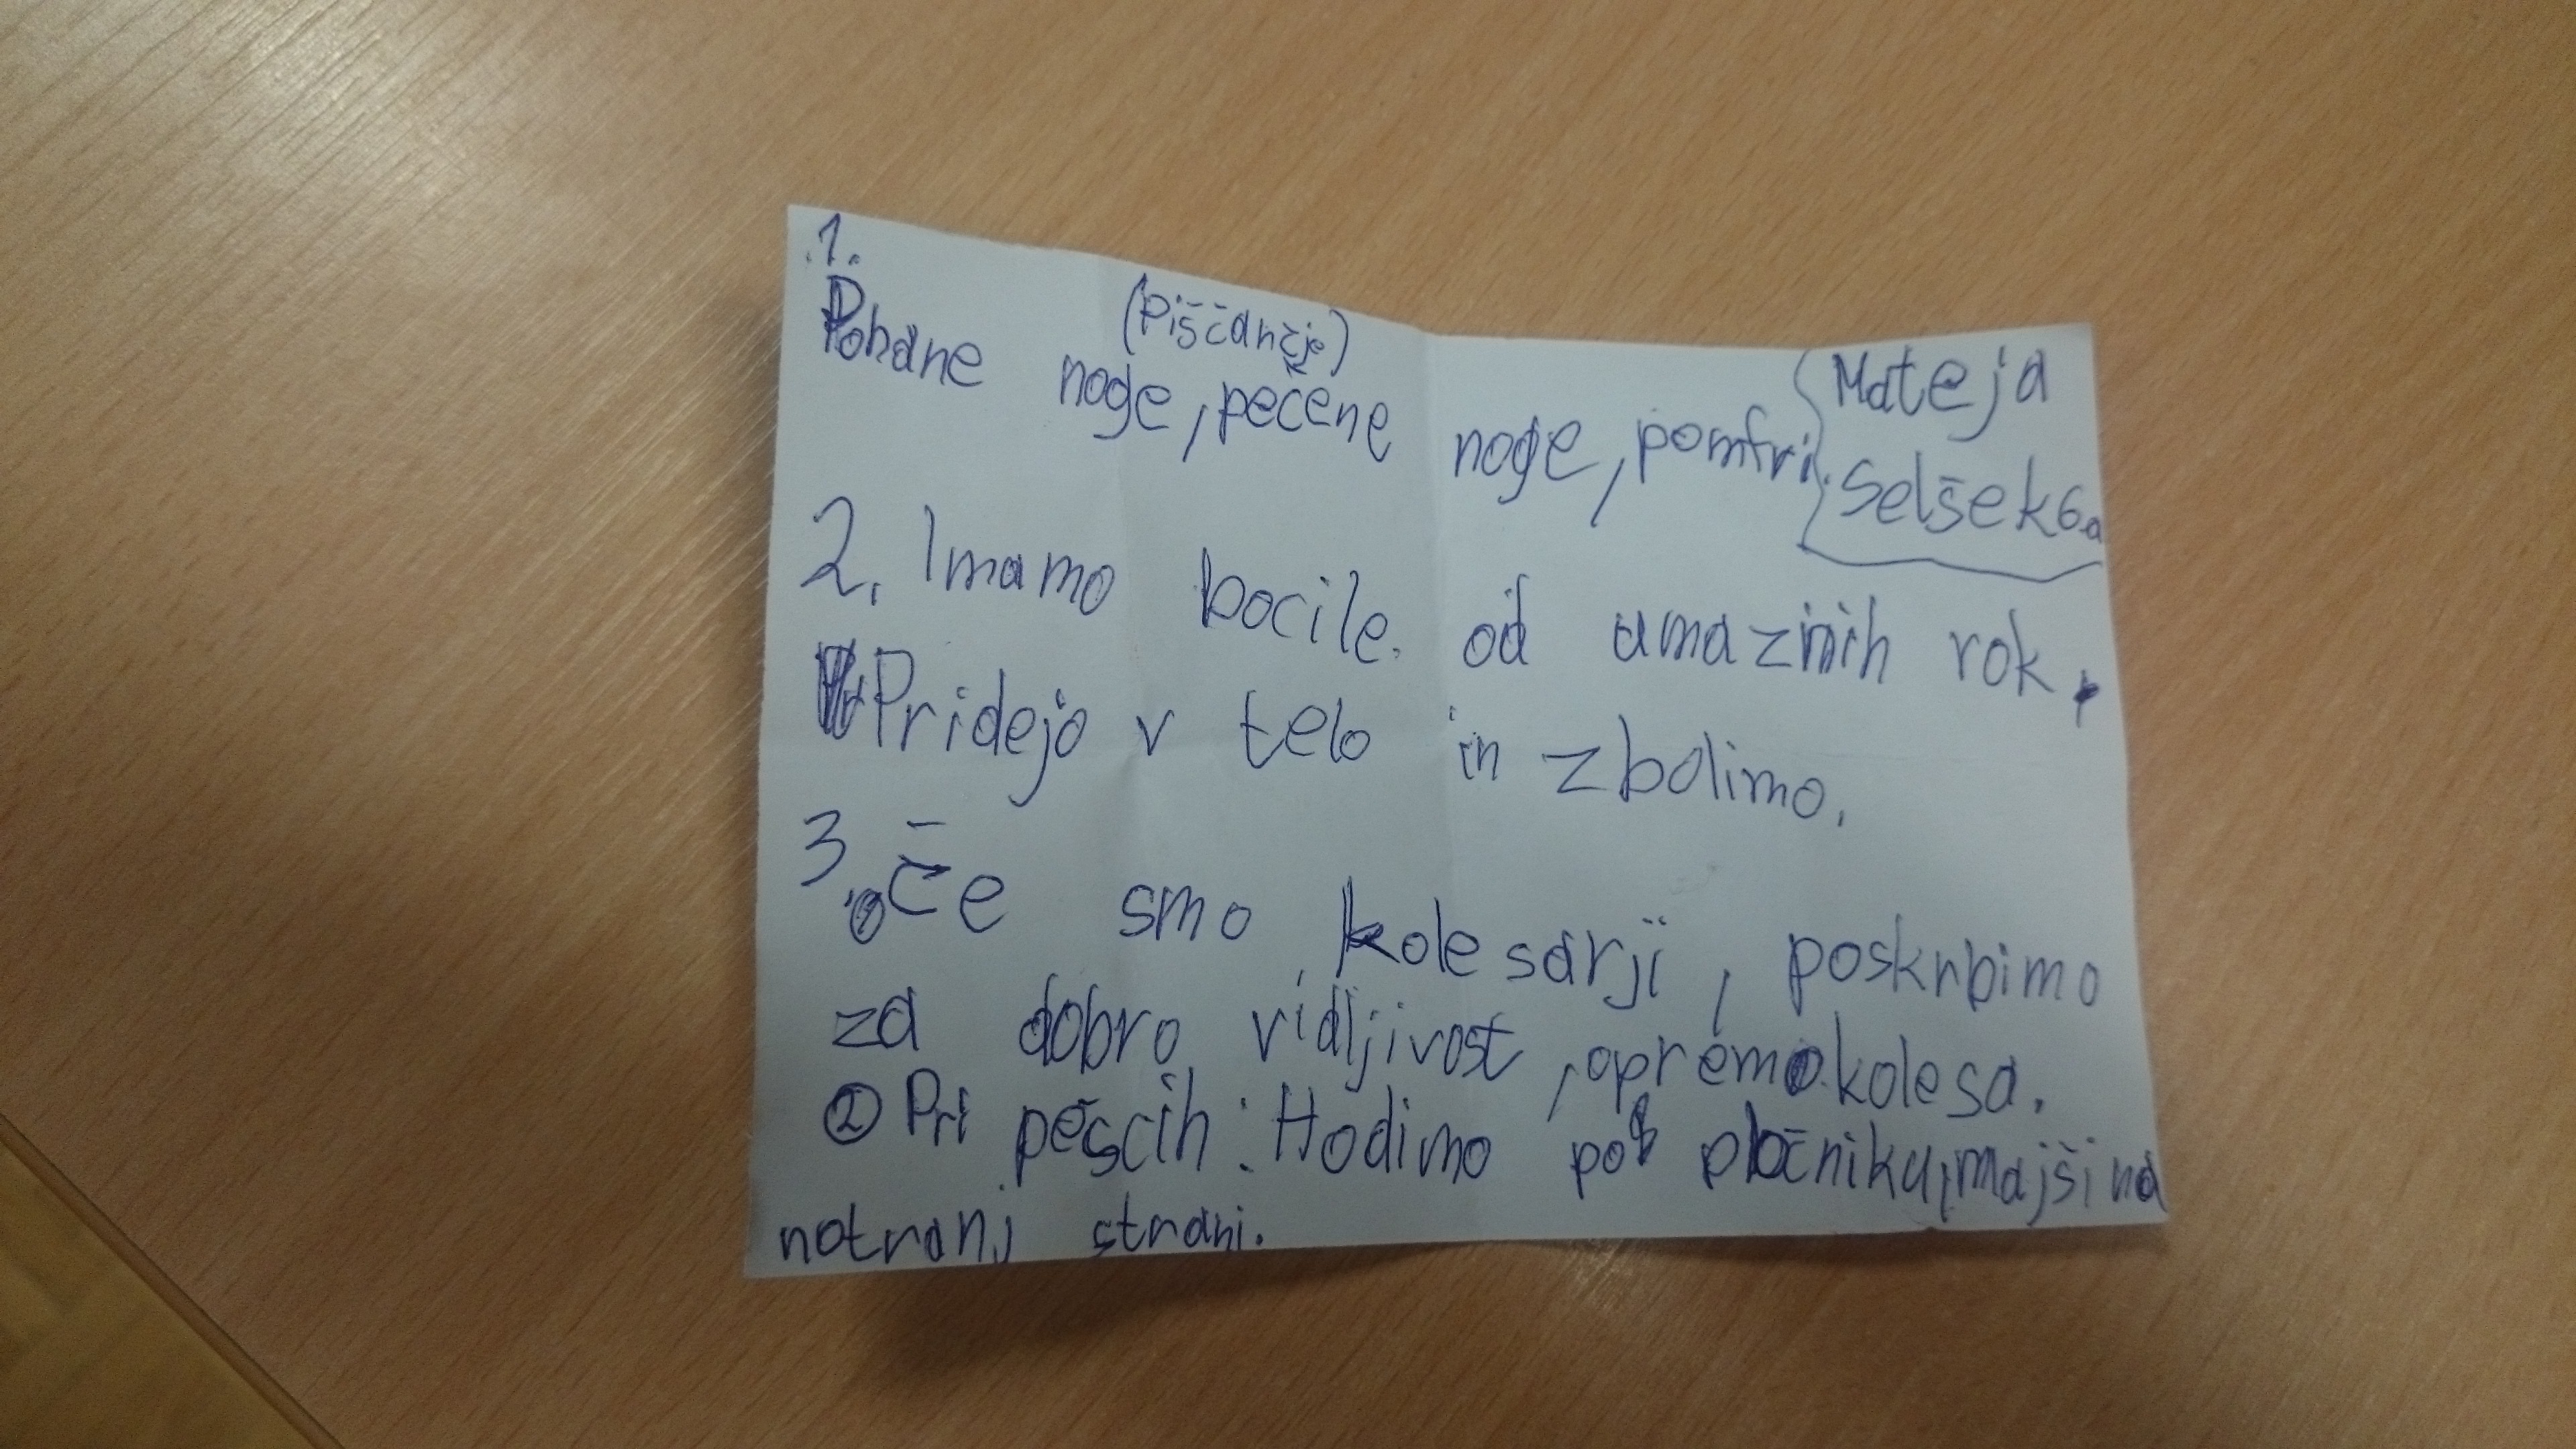 1.
(Piščančje)
Pohane noge, pečene noge, pomfri.
Mateja
Selšek 6.a
2. Imamo bocile. od umaznih rok.
Pridejo v telo in zbolimo.
3. ① Če smo kolesarji, poskrbimo
za dobro vidljivost, opremo kolesa.
② Pri pešcih: Hodimo po pločniku, majši na
notranj strani.